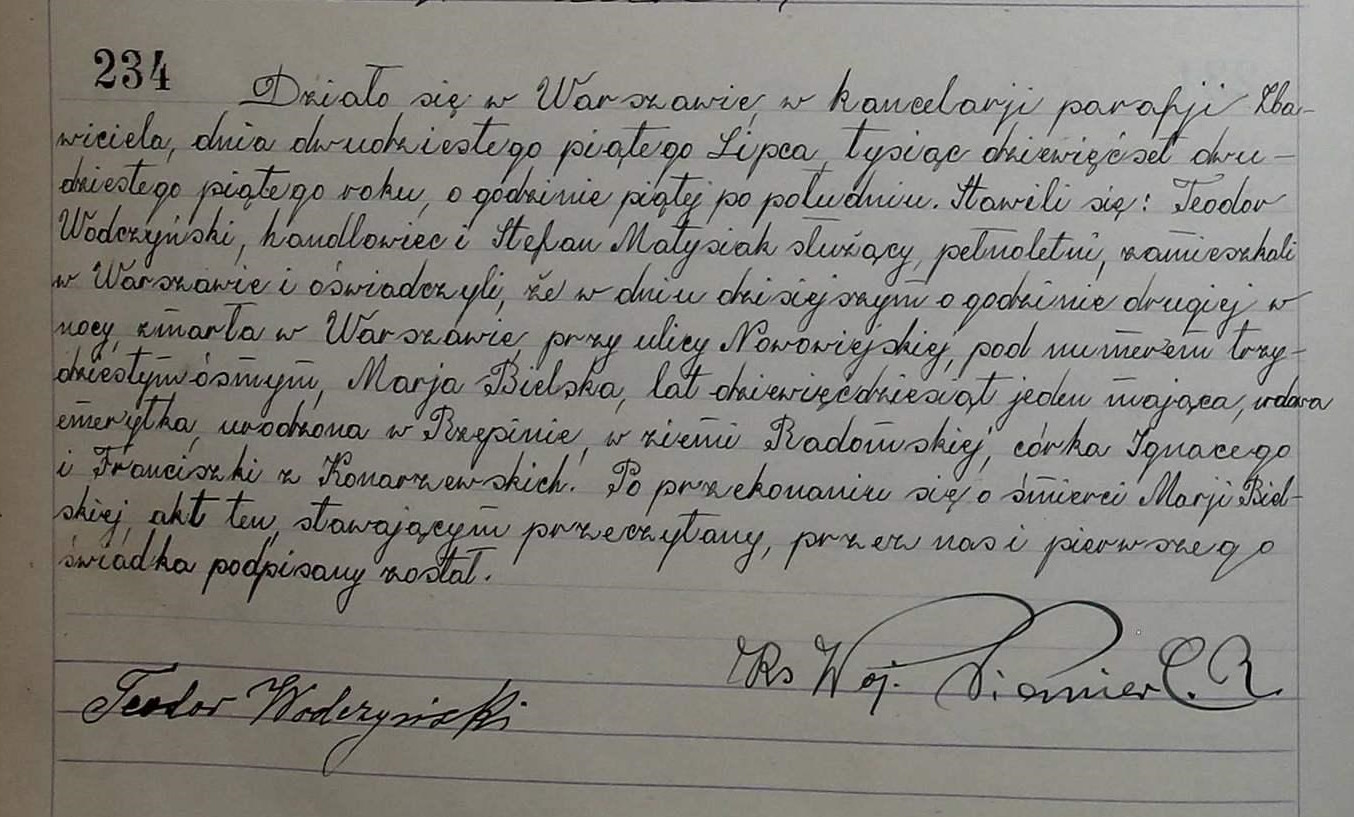 234
Działo się w Warszawie, w kancelarji parafji Zba-
wiciela, dnia dwudziestego piątego Lipca, tysiąc dziewięćset dwu-
dziestego piątego roku, o godzinie piątej po południu. Stawili się: Teodor
Wodczyński, handlowiec i Stefan Małysiak służący, pełnoletni, zamieszkali
w Warszawie i oświadczyli, że w dniu dzisiejszym o godzinie drugiej w
nocy, zmarła w Warszawie, przy ulicy Nowowiejskiej, pod numerem trzy-
dziestym ósmym, Marja Bielska, lat dziewięćdziesiąt jeden mająca, wdowa
emerytka, urodzona w Rzepinie, w ziemi Radomskiej, córka Ignacego
i Franciszki z Konarzewskich. Po przekonaniu się o śmierci Marji Biel-
skiej, akt ten, stawającym przeczytany, przez nas i pierwszego
świadka podpisany został.
Ks Woj. C.R.
Teodor Wodczyński